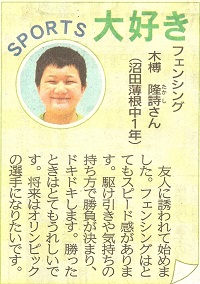 SPORTS 大好き
フェンシング
木樽 隆詩さん
たかし
(沼田薄根中1年)
友人に誘われて始めま
した。フェンシングはと
てもスピード感がありま
す。駆け引きや気持ちの
持ち方で勝負が決まり、
ドキドキします。勝った
ときはとてもうれしいで
す。将来はオリンピック
の選手になりたいです。